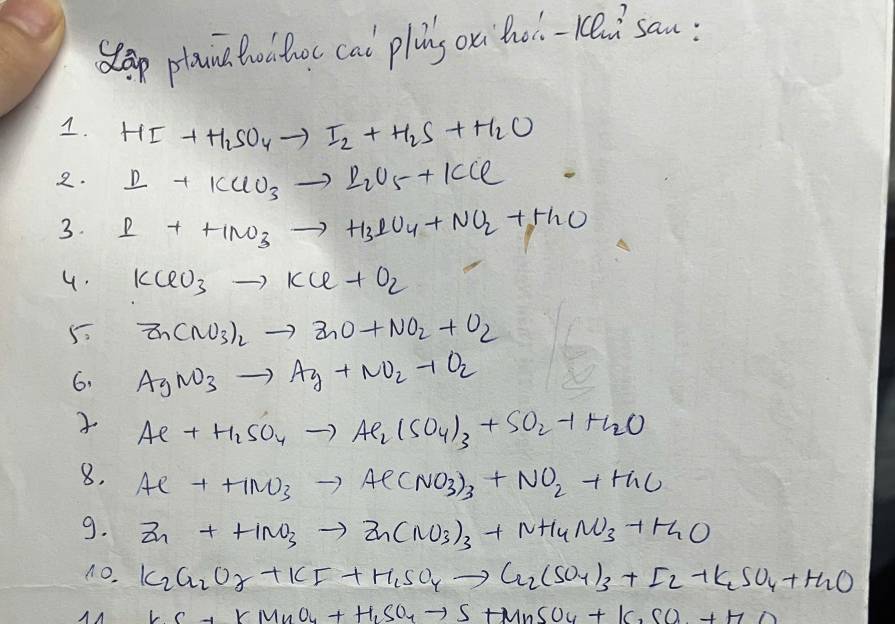 Lập ptrình hoá học các p/ứng oxi hoá - Khử sau :
1. HI + H₂SO₄ → I₂ + H₂S + H₂O
2. P + KClO₃ → P₂O₅ + KCl
3. P + HNO₃ → H₃PO₄ + NO₂ + H₂O
4. KClO₃ → KCl + O₂
5. Zn(NO₃)₂ → ZnO + NO₂ + O₂
6. AgNO₃ → Ag + NO₂ + O₂
7 Al + H₂SO₄ → Al₂(SO₄)₃ + SO₂ + H₂O
8. Al + HNO₃ → Al(NO₃)₃ + NO₂ + H₂O
9. Zn + HNO₃ → Zn(NO₃)₃ + NH₄NO₃ + H₂O
10. K₂Cr₂O₇ + KI + H₂SO₄ → Cr₂(SO₄)₃ + I₂ + K₂SO₄ + H₂O
11 K₂S + KMnO₄ + H₂SO₄ → S + MnSO₄ + K₂SO₄ + H₂O